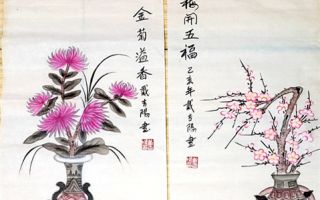 金菊溢香
戴吉陽畫
梅開五福
乙亥年戴吉陽畫